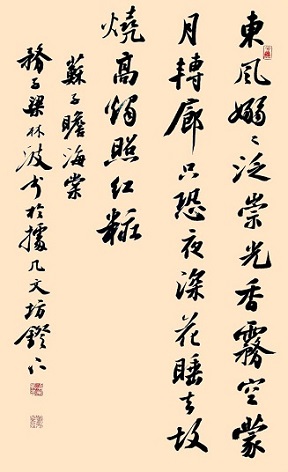 東風嫋〻泛崇光香霧空蒙
月轉廊只恐夜深花睡去故
燒高燭照紅粧
蘇子瞻海棠
務子梁林波书於據几文坊鐙下